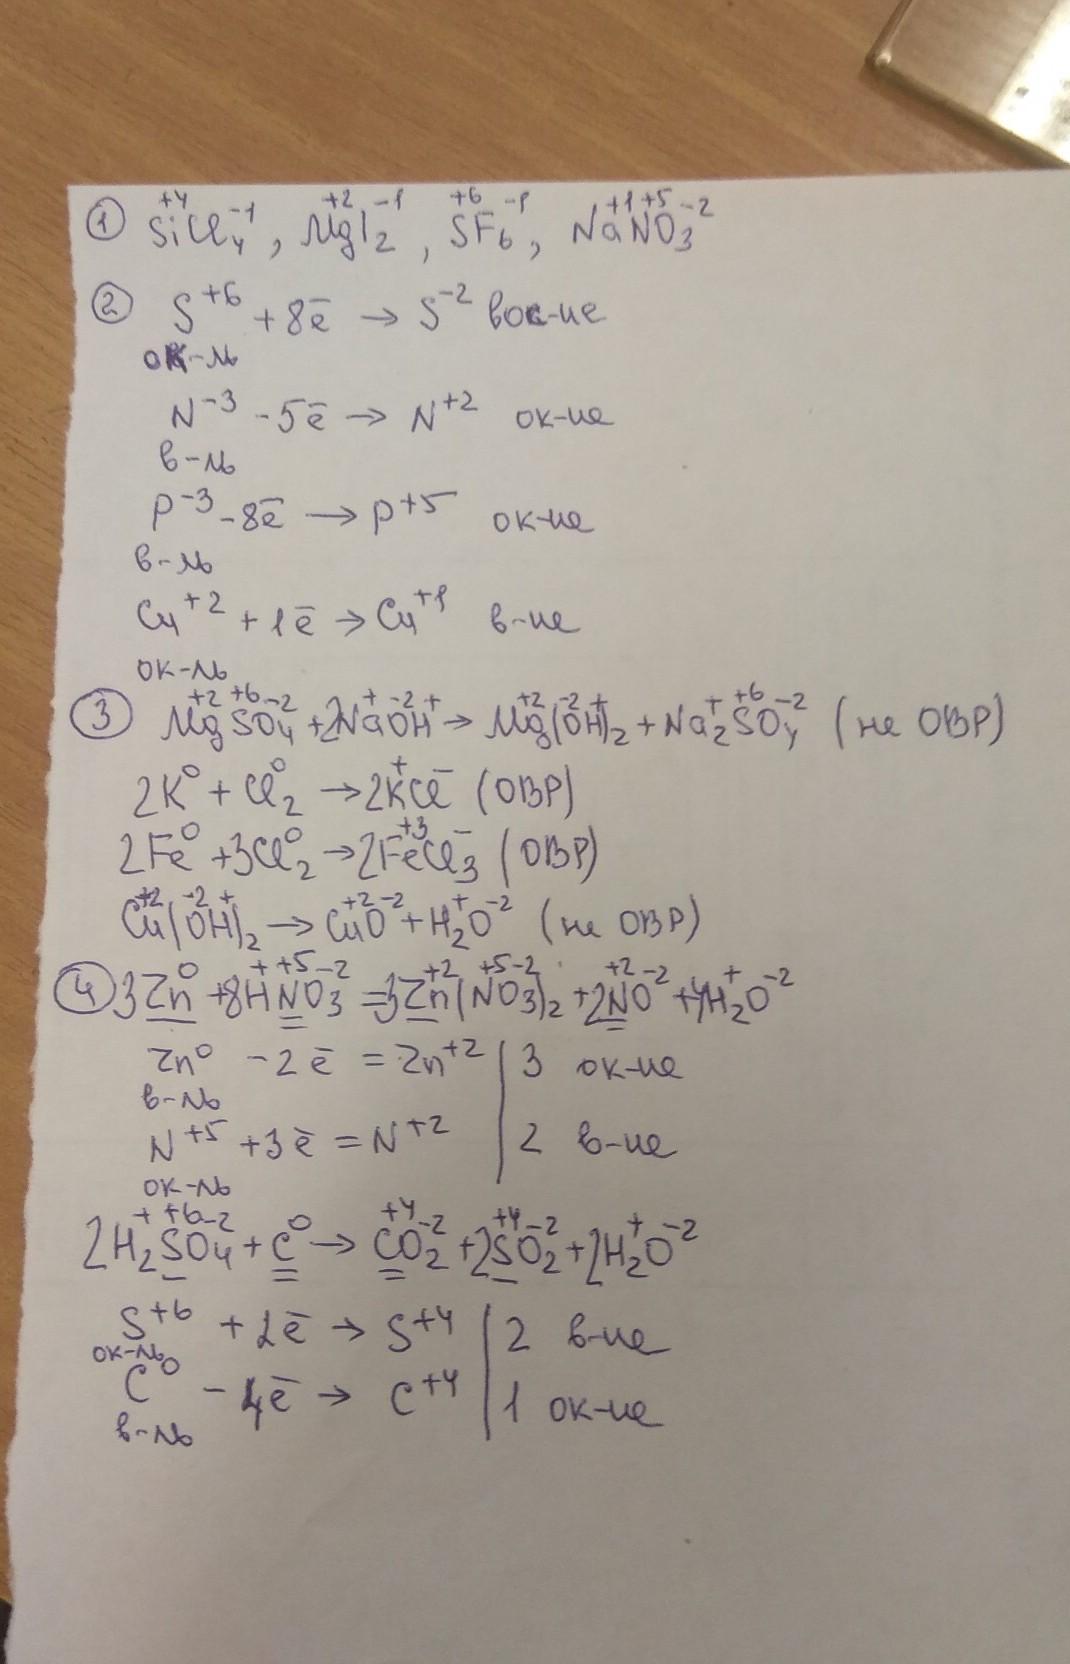 ① Si⁺⁴Cl₄⁻¹, Mg⁺²I₂⁻¹, S⁺⁶F₆⁻¹, Na⁺¹N⁺⁵O₃⁻²
② S⁺⁶ + 8ē → S⁻² вос-ие
ок-ль
N⁻³ - 5ē → N⁺² ок-ие
в-ль
P⁻³ - 8ē → P⁺⁵ ок-ие
в-ль
Cu⁺² + 1ē → Cu⁺¹ в-ие
ок-ль
③ Mg⁺²S⁺⁶O₄⁻² + 2Na⁺O⁻²H⁺ → Mg⁺²(O⁻²H⁺)₂ + Na₂⁺S⁺⁶O₄⁻² (не ОВР)
2K⁰ + Cl₂⁰ → 2K⁺Cl⁻ (ОВР)
2Fe⁰ + 3Cl₂⁰ → 2Fe⁺³Cl₃⁻ (ОВР)
Cu⁺²(O⁻²H⁺)₂ → Cu⁺²O⁻² + H₂⁺O⁻² (не ОВР)
④ 3Zn⁰ + 8H⁺N⁺⁵O₃⁻² = 3Zn⁺²(N⁺⁵O₃⁻²)₂ + 2N⁺²O⁻² + 4H₂⁺O⁻²
Zn⁰ - 2ē = Zn⁺² | 3 ок-ие
в-ль
N⁺⁵ + 3ē = N⁺² | 2 в-ие
ок-ль
2H₂⁺S⁺⁶O₄⁻² + C⁰ → C⁺⁴O₂⁻² + 2S⁺⁴O₂⁻² + 2H₂⁺O⁻²
S⁺⁶ + 2ē → S⁺⁴ | 2 в-ие
ок-ль
C⁰ - 4ē → C⁺⁴ | 1 ок-ие
в-ль